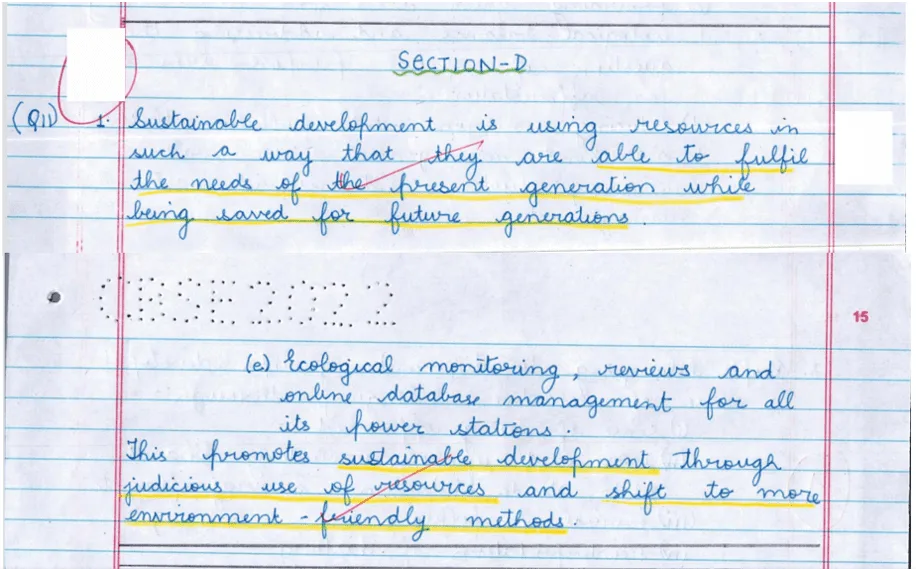 SECTION-D
(Q11) 1. Sustainable development is using resources in
such a way that they are able to fulfil
the needs of the present generation while
being saved for future generations.
CBSE 2022
15
(e) Ecological monitoring, reviews and
online database management for all
its power stations.
This promotes sustainable development through
judicious use of resources and shift to more
environment-friendly methods.